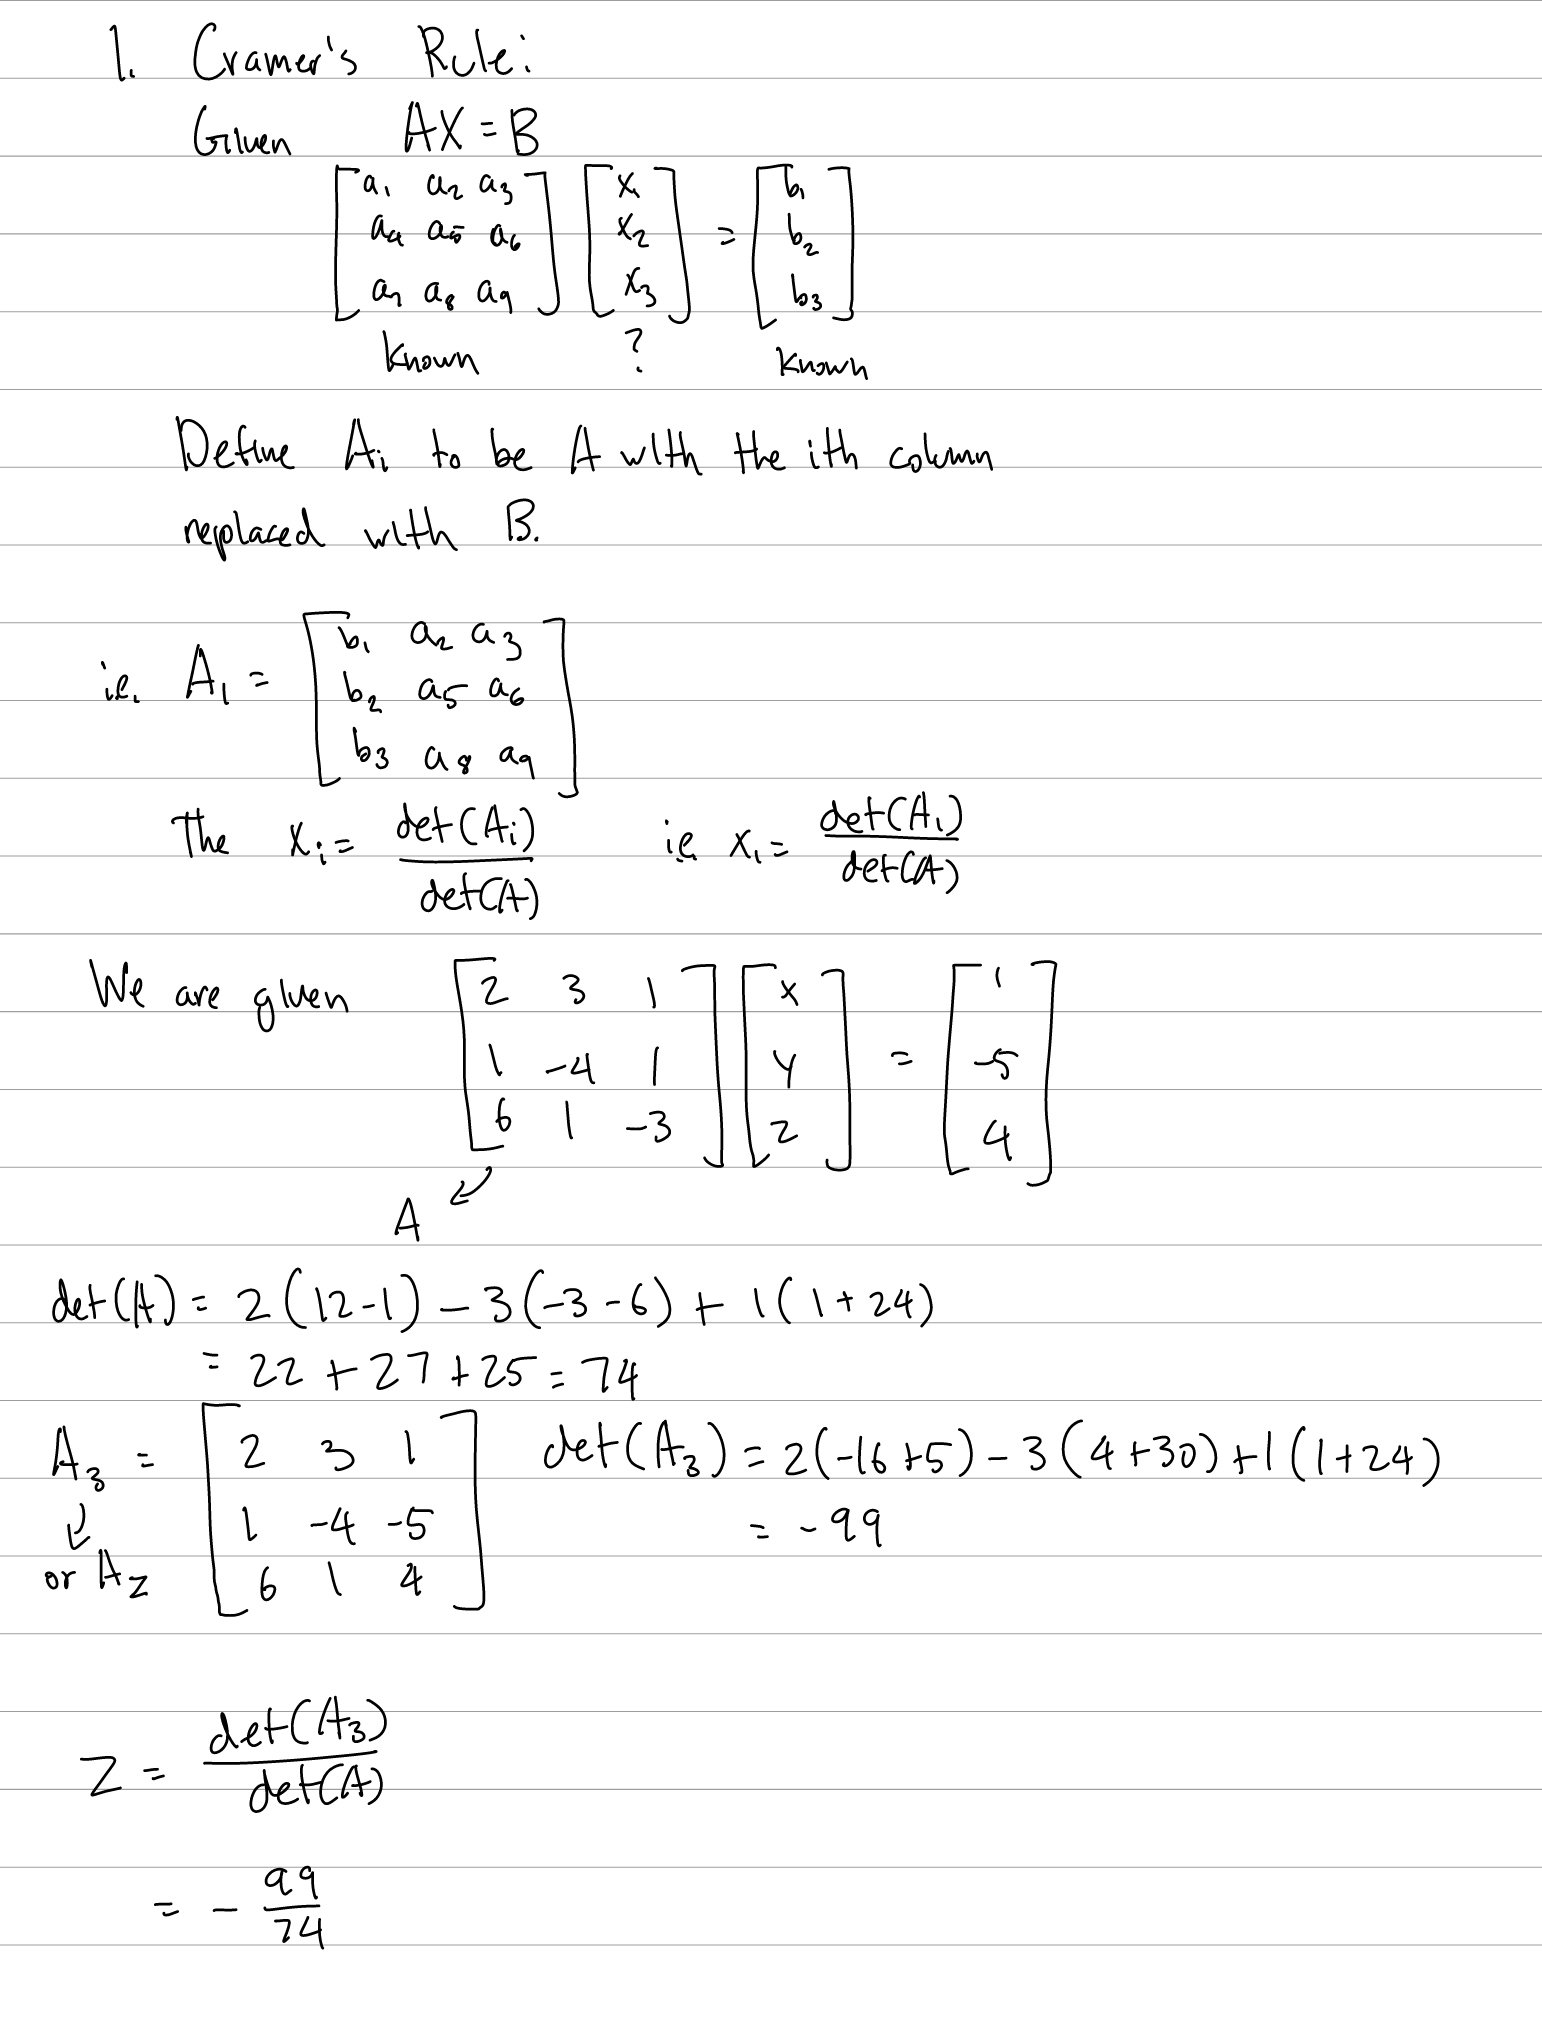 1. Cramer's Rule:
Given AX = B
[a₁ a₂ a₃] [x₁] = [b₁]
[a₄ a₅ a₆] [x₂] = [b₂]
[a₇ a₈ a₉] [x₃] = [b₃]
Known ? Known
Define Aᵢ to be A with the ith column
replaced with B.
i.e. A₁ = [b₁ a₂ a₃]
[b₂ a₅ a₆]
[b₃ a₈ a₉]
The xᵢ = det(Aᵢ)/det(A) i.e. x₁ = det(A₁)/det(A)
We are given [2 3 1] [x] = [1]
[1 -4 1] [y] = [-5]
[6 1 -3] [z] = [4]
A
det(A) = 2(12-1) - 3(-3-6) + 1(1+24)
= 22 + 27 + 25 = 74
A₃ = [2 3 1] det(A₃) = 2(-16+5) - 3(4+30) + 1(1+24)
[1 -4 -5] = -99
or A_z [6 1 4]
z = det(A₃)/det(A)
= - 99/74